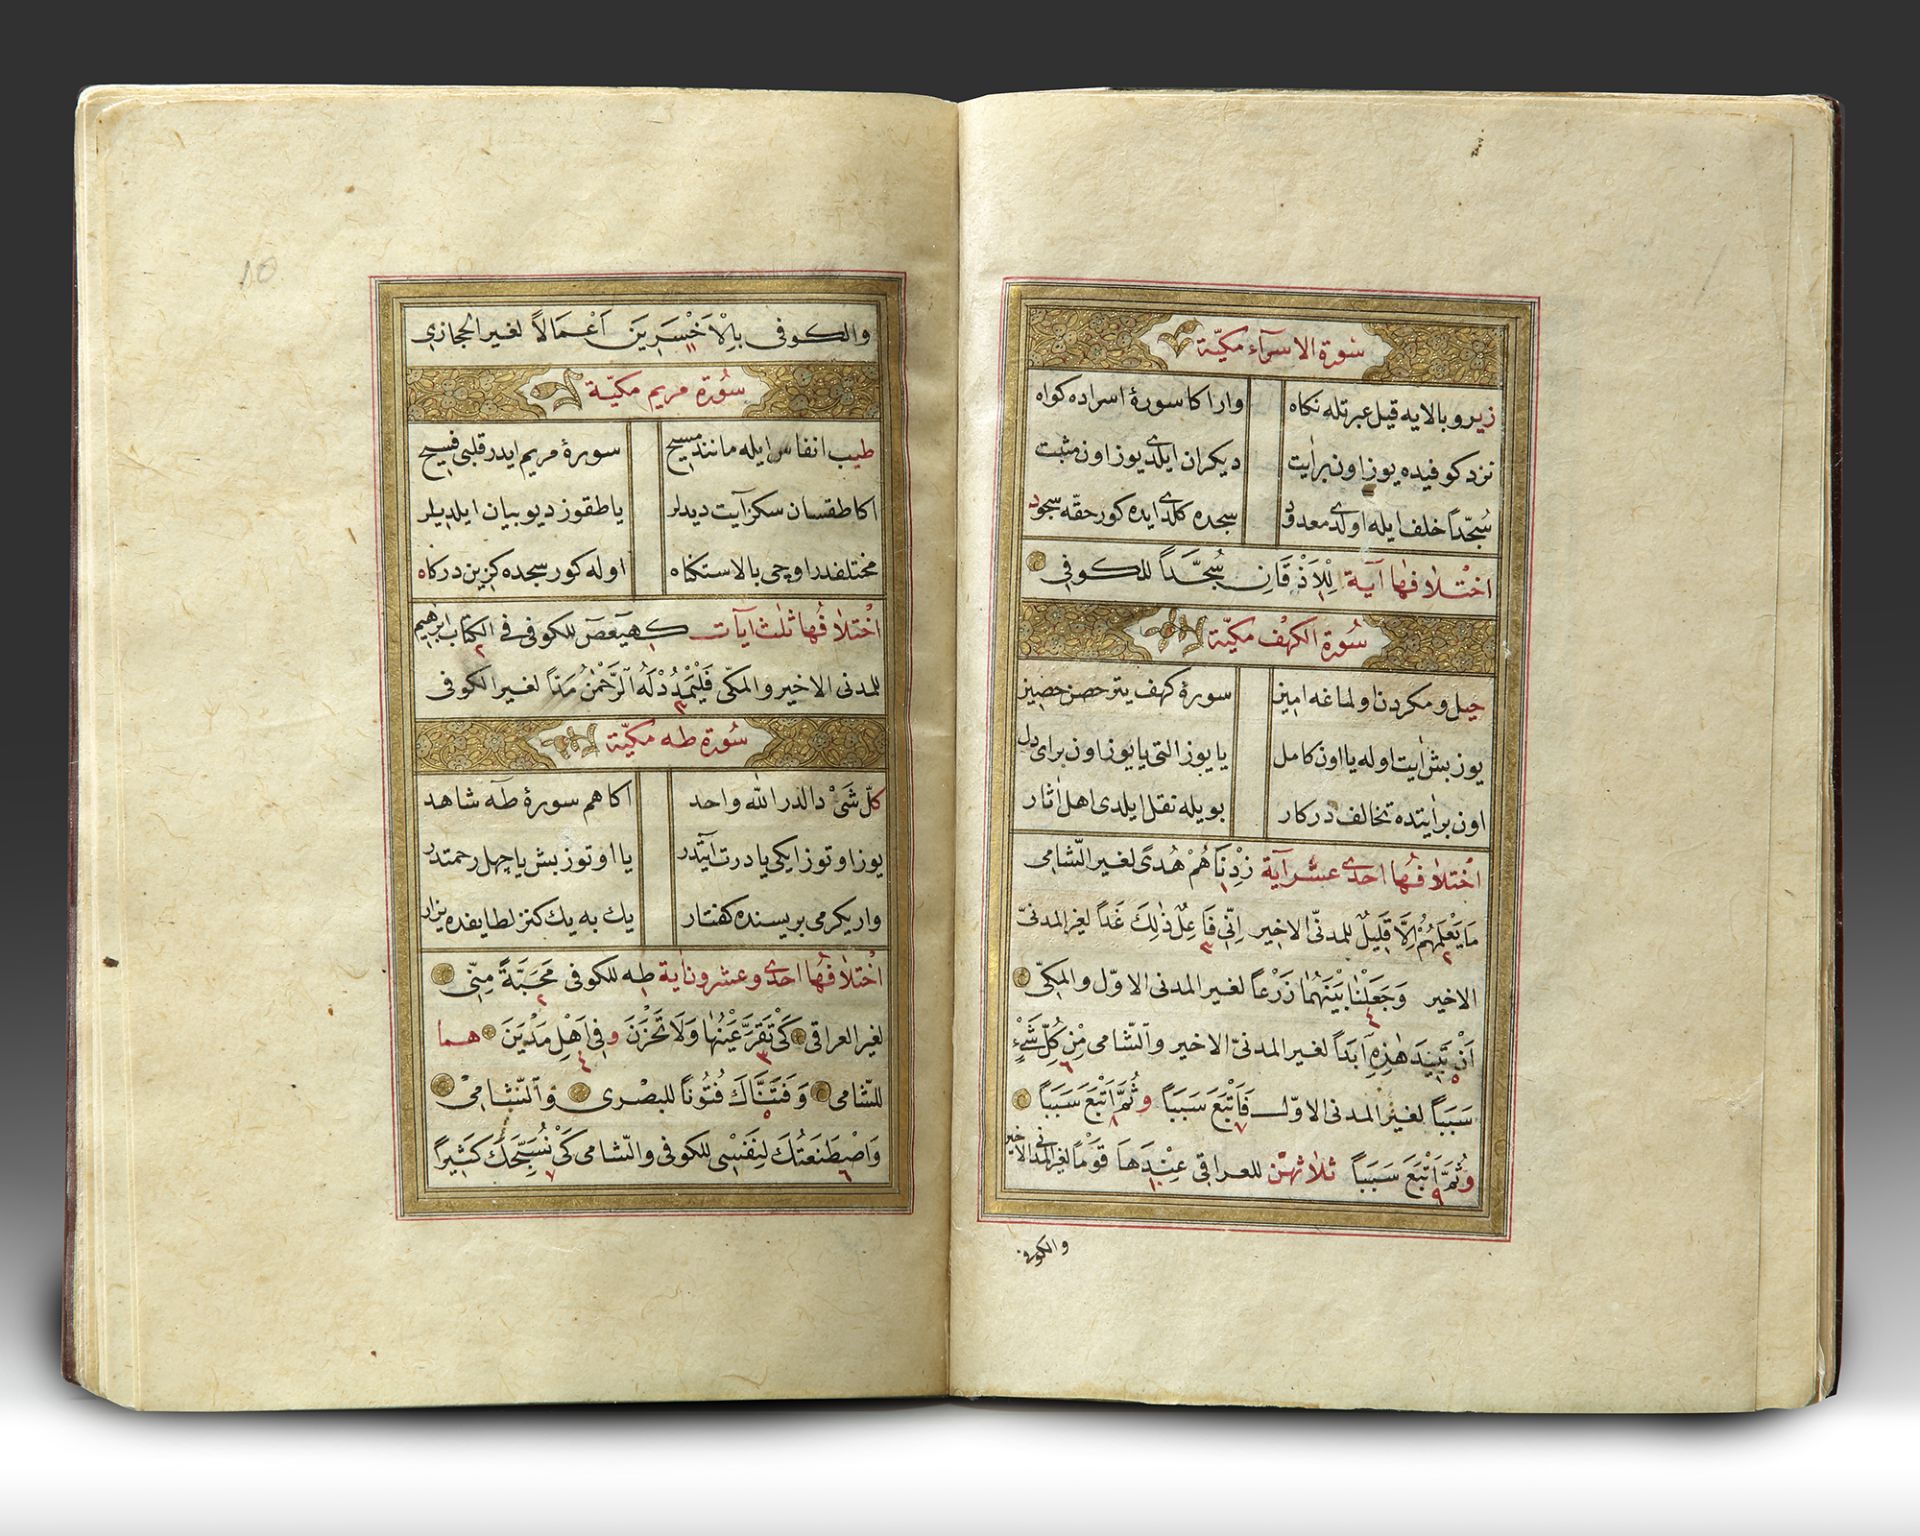 سورة الاسرآء مكيّة
زير و بالايه قيل عبرتله نكاه وار اكا سورهٔ اسراده كواه
نزد كوفيده يوز اون بر اٰيت ديكران ايلدى يوز اون مثبت
سجّداً خلف ايله اولدى معدود سجده كلدى ايده كور حقه سجود
اختلافها آية لِلْاَذْقَانِ سُجَّداً للكوفى
سُورة الكهف مكيّة
حيل و مكردن اولماغه امين سورهٔ كهف يتر حصن حصين
يوز بش اٰيت اوله يا اون كامل يا يوز التى يا يوز اون براى دل
اون بر اٰيتده تخالف دركار بويله نقل ايلدى اهل اٰثار
اختلافها احدى عشر آية زِدْنَاهُمْ هُدًى لغير الشّامى
مَا يَعْلَمُهُمْ اِلَّا قَلِيلٌ للمدنىّ الاخير اِنِّى فَاعِلٌ ذٰلِكَ غَداً لغير المدنىّ
الاخير وَجَعَلْنَا بَيْنَهُمَا زَرْعاً لغير المدنى الاوّل والمكىّ
اَنْ تَبِيدَ هٰذِهِ اَبَداً لغير المدنىّ الاخير والشّامى مِنْ كُلِّ شَىْءٍ
سَبَباً لغير المدنى الاوّل فَاَتْبَعَ سَبَباً و ثُمَّ اَتْبَعَ سَبَباً
و ثُمَّ اَتْبَعَ سَبَباً ثلاثهنّ للعراقى عِنْدَهَا قَوْماً لغير المدنى الاخير
والكوفى
والكوفى بِالْاَخْسَرِينَ اَعْمَالاً لغير الحجازى
سُورة مريم مكيّة
طيب انفاس ايله مانند مسيح سورهٔ مريم ايدر قلبى فسيح
اكا طقسان سكز آيت ديدلر يا طقوز ديو بيان ايلديلر
مختلفدر اوچى بالاستكناه اوله كور سجده كزين دركاه
اختلافها ثلث آيات كهيعص للكوفى فى الكتاب ابرهيم
للمدنى الاخير والمكىّ فَلْيَمْدُدْ لَهُ الرَّحْمٰنُ مَدًّا لغير الكوفى
سُورة طه مكيّة
كلّ شَىْ دالدر الله واحد اكا هم سورهٔ طه شاهد
يوز اوتوز ايكى يا درت اٰيتدر يا اوتوز بش يا چهل رحمتدر
وار يكرمى بريسنده كفتار يك به يك كنز لطايفده يزار
اختلافها احدى وعشرون اٰية طه للكوفى مَحَبَّةً مِنِّى
لغير العراقى كَىْ تَقَرَّ عَيْنُهَا وَلَا تَحْزَنَ و فِى اَهْلِ مَدْيَنَ هما
للشّامى وَفَتَنَّاكَ فُتُوناً للبصرى والشّامى
وَاصْطَنَعْتُكَ لِنَفْسِى للكوفى والشّامى كَىْ نُسَبِّحَكَ كَثِيراً